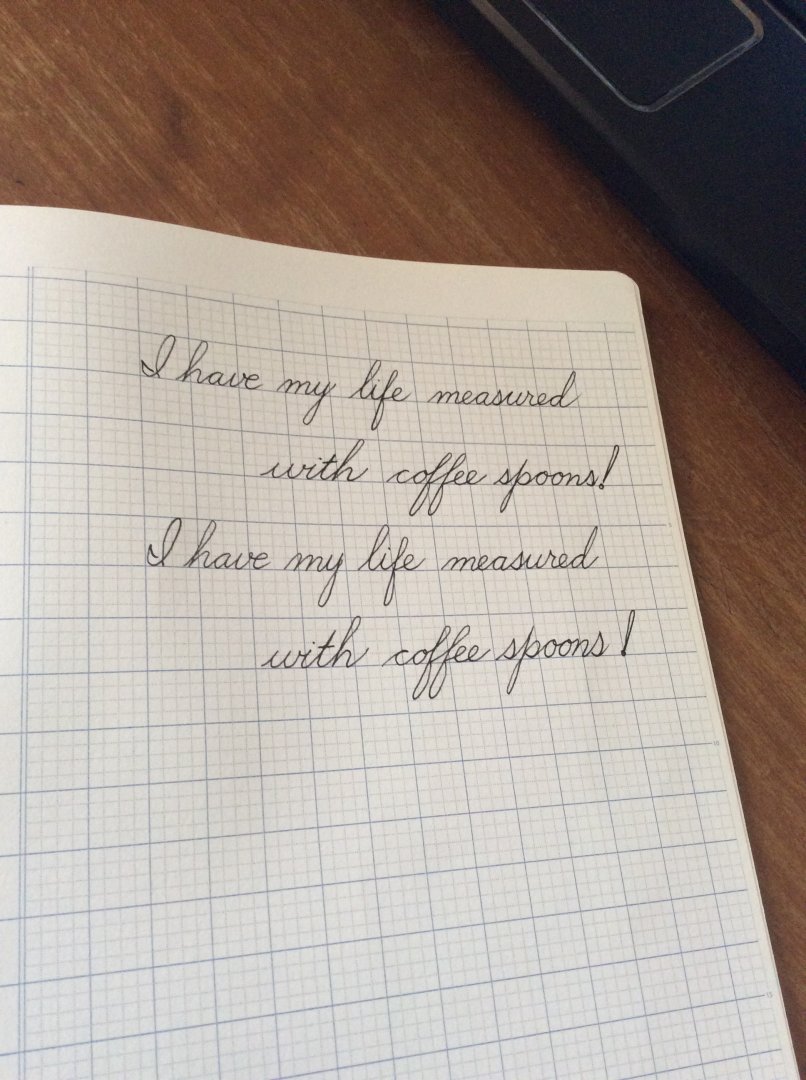 I have my life measured
with coffee spoons!
I have my life measured
with coffee spoons!